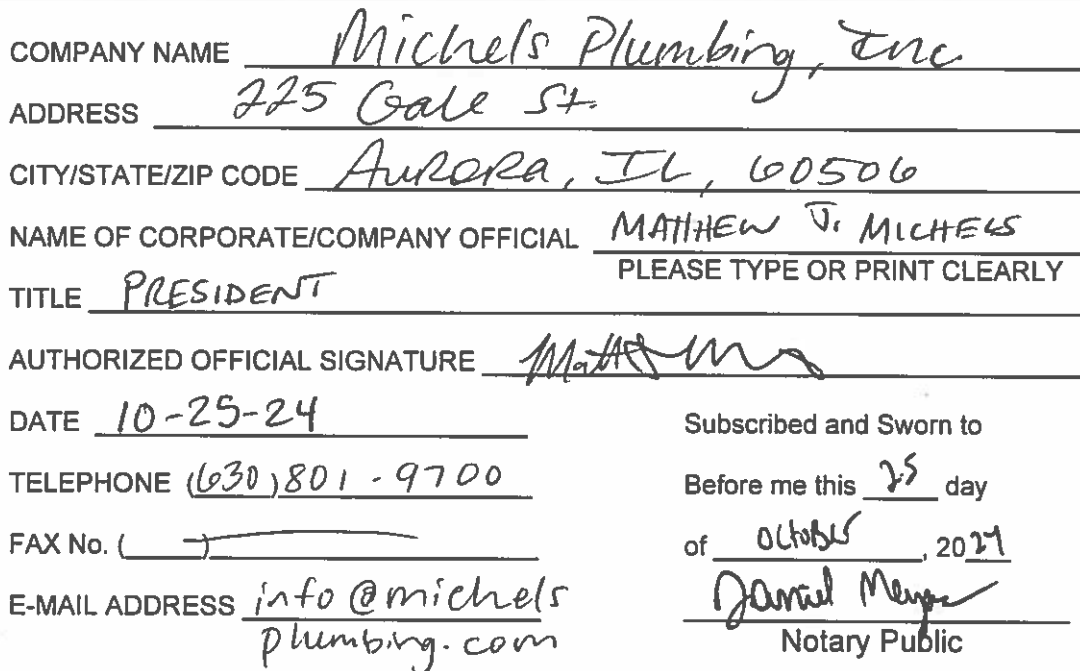 COMPANY NAME Michels Plumbing, Inc.
ADDRESS 225 Gale St.
CITY/STATE/ZIP CODE Aurora, IL, 60506
NAME OF CORPORATE/COMPANY OFFICIAL MATTHEW J. MICHELS
PLEASE TYPE OR PRINT CLEARLY
TITLE PRESIDENT
AUTHORIZED OFFICIAL SIGNATURE
DATE 10-25-24
TELEPHONE (630) 801-9700
FAX No. ( )
E-MAIL ADDRESS info@michels
plumbing.com
Subscribed and Sworn to
Before me this 25 day
of October, 2024
Daniel
Notary Public